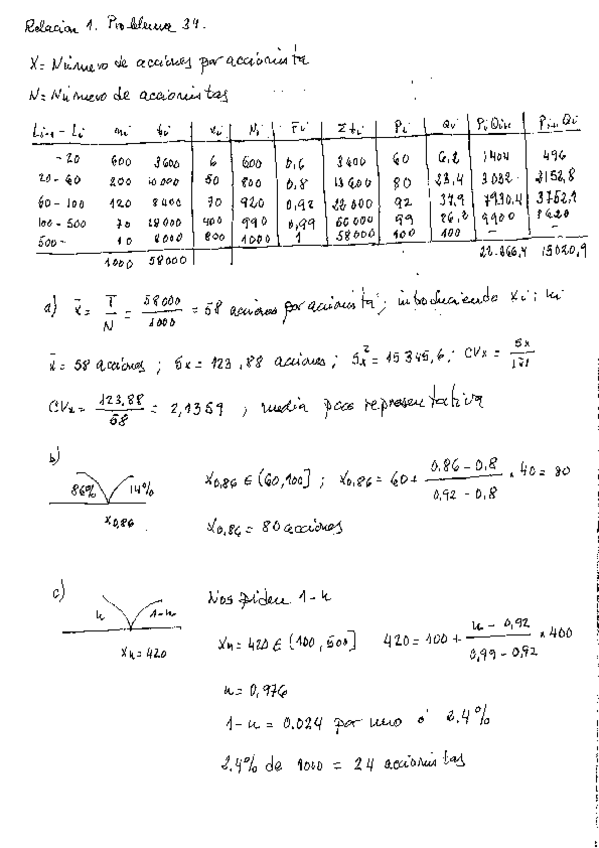 Relacion 1. Problema 34.
X = Número de acciones por accionista
N = Número de accionistas
Li-1 - Li ni ti xi Ni Fi Σti Pi Qi PiQi+1 Pi+1Qi
-20 600 3600 6 600 0,6 3600 60 6,2 1404 496
20-60 200 10000 50 800 0,8 13600 80 23,4 3032 2152,8
60-100 120 8400 70 920 0,92 22000 92 37,9 7930,4 3752,1
100-500 70 28000 400 990 0,99 50000 99 86,2 9900 8620
500- 10 8000 800 1000 1 58000 100 100 - -
1000 58000 22.266,4 15020,9
a) x̄ = T/N = 58000/1000 = 58 acciones por accionista; introduciendo xi; ni
x̄ = 58 acciones; Sx = 123,88 acciones; Sx² = 15345,6; CVx = Sx/|x̄|
CVx = 123,88/58 = 2,1359; media poco representativa
b)
86% 14% x0,86
x0,86 ∈ (60,100]; x0,86 = 60 + (0,86 - 0,8)/(0,92 - 0,8) * 40 = 80
x0,86 = 80 acciones
c) Nos piden 1-n
n 1-n xn = 420
xn = 420 ∈ (100, 500] 420 = 100 + (n - 0,92)/(0,99 - 0,92) * 400
n = 0,976
1-n = 0.024 por uno ó 2.4%
2.4% de 1000 = 24 accionistas